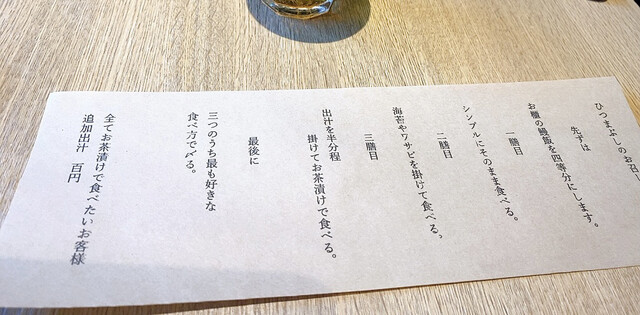 ひつまぶしのお召
先ずは
お膳の鰻飯を四等分にします。
一膳目
シンプルにそのまま食べる。
二膳目
海苔やワサビを掛けて食べる。
三膳目
出汁を半分程
掛けてお茶漬けで食べる。
最後に
三つのうち最も好きな
食べ方で〆る。
全てお茶漬けで食べたいお客様
追加出汁 百円